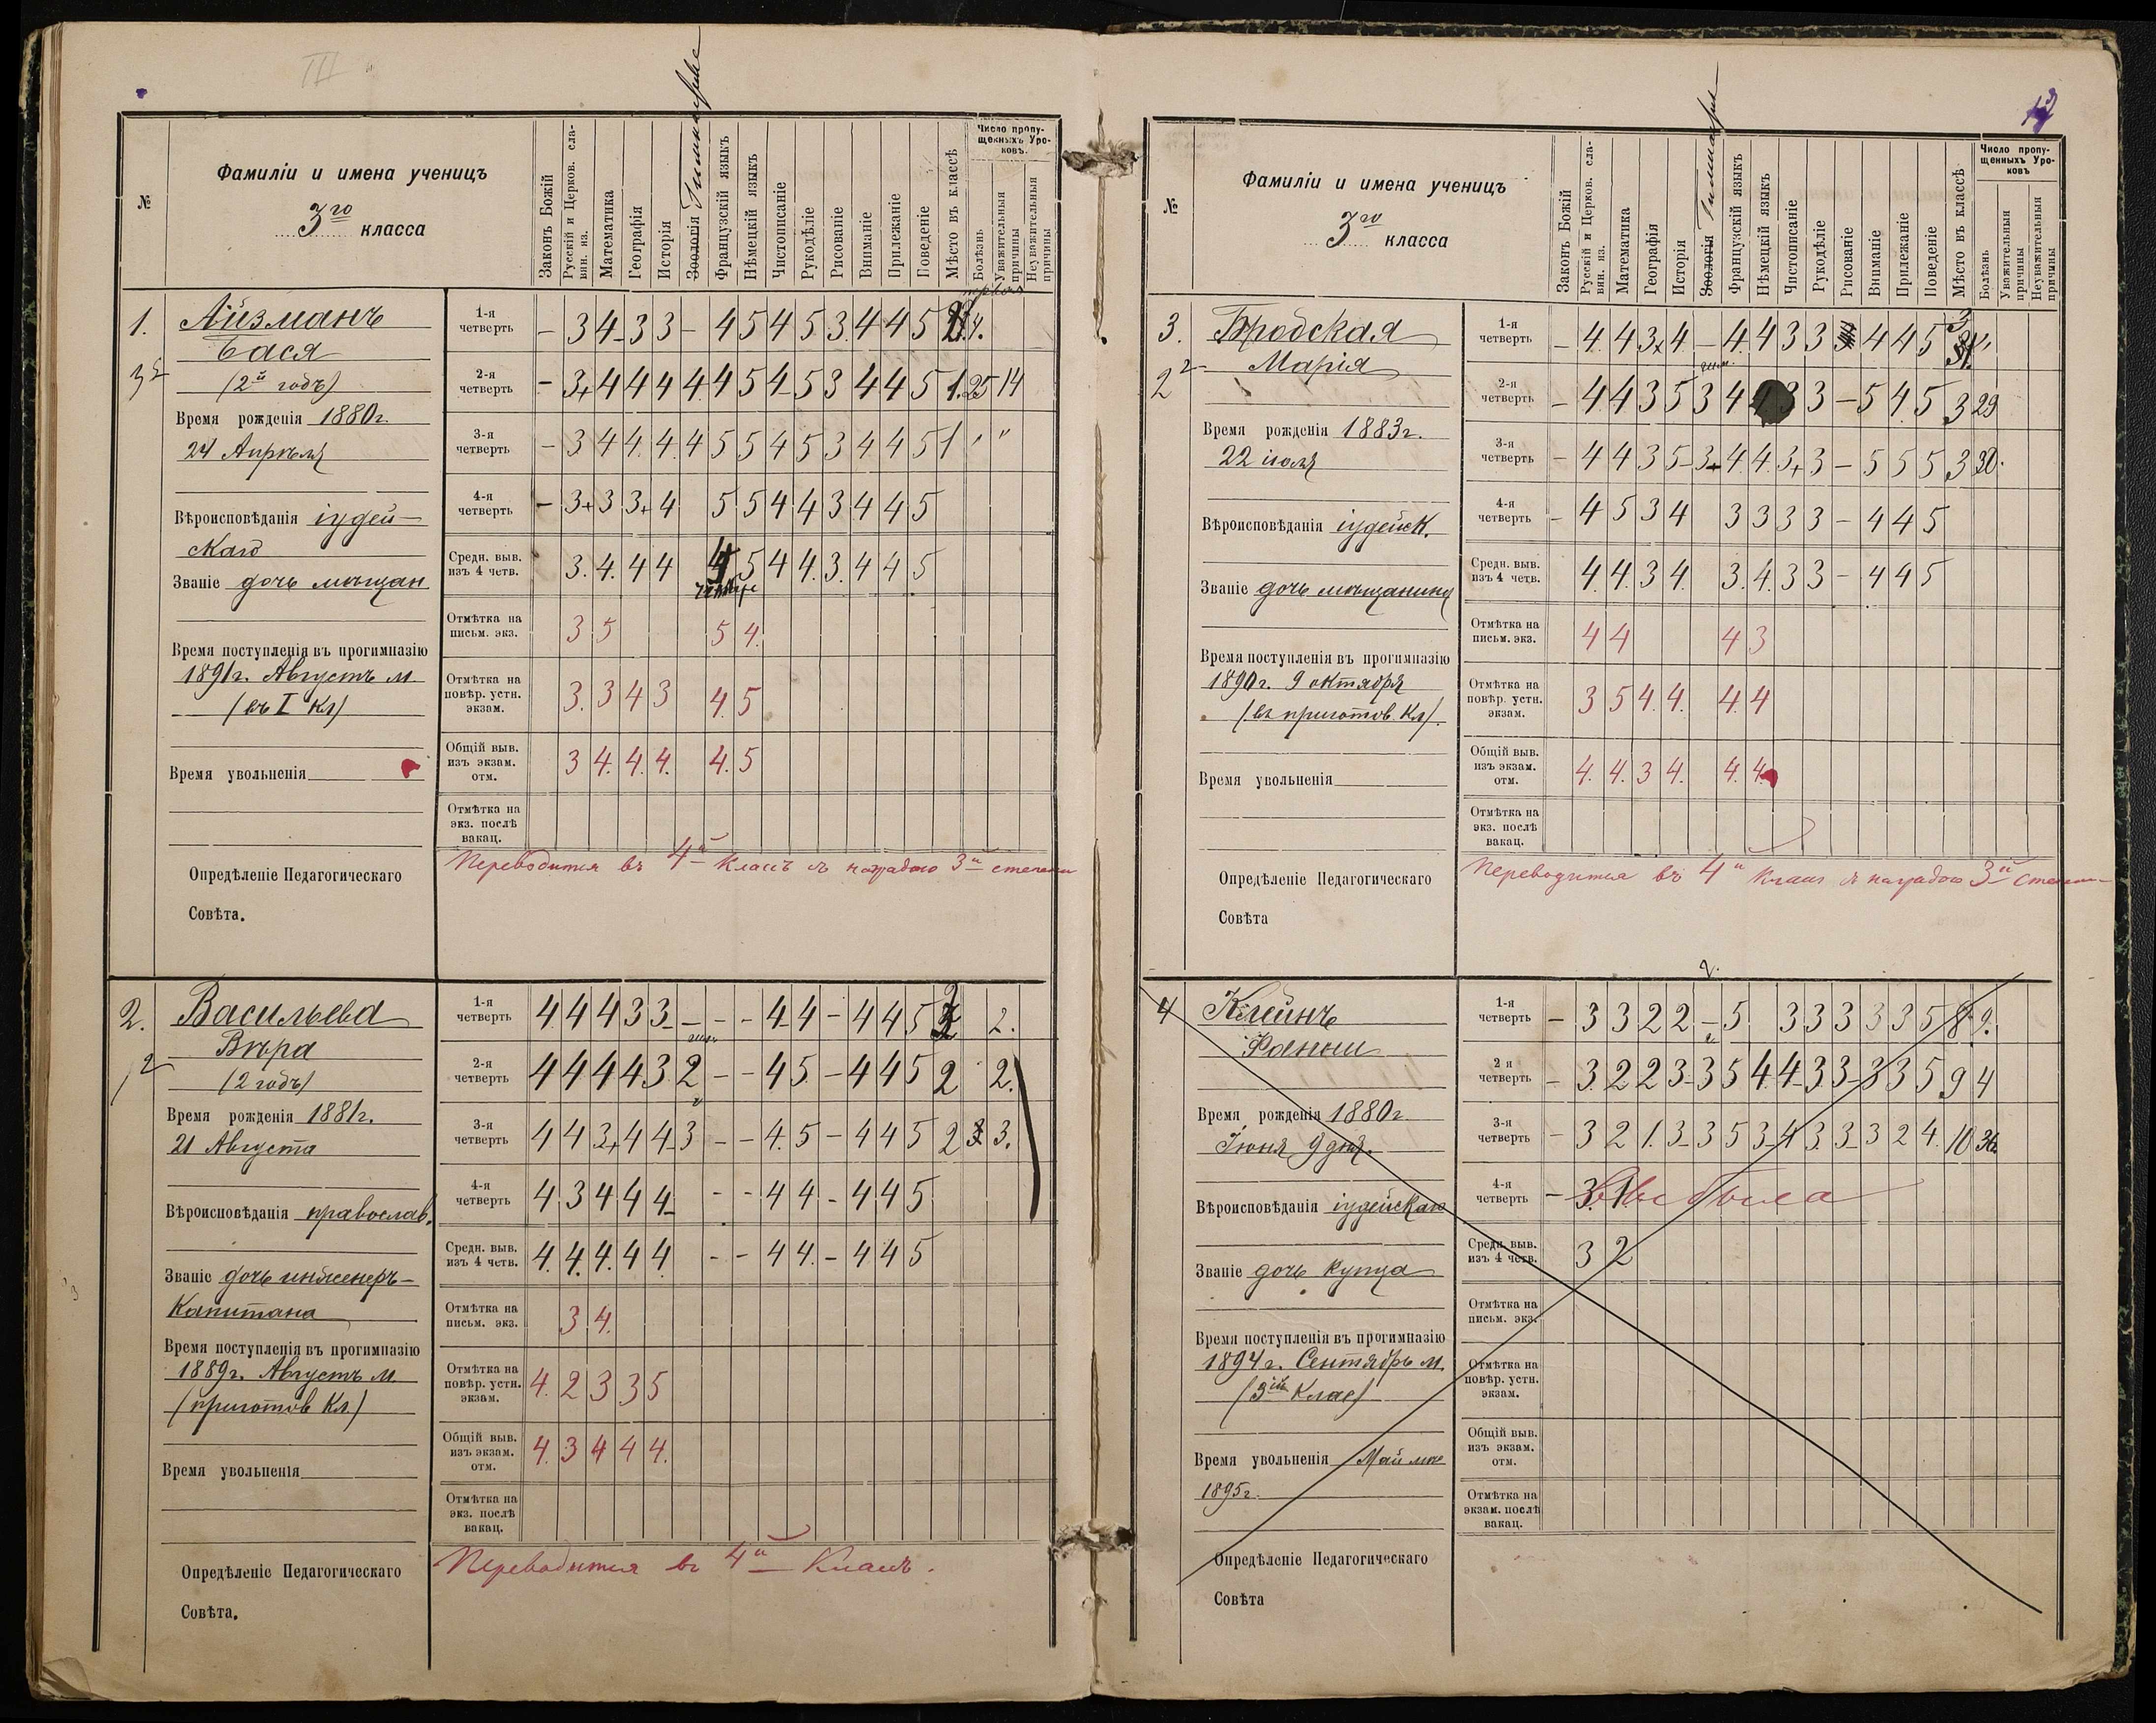 III
№
Фамиліи и имена ученицъ
3го класса
Законъ Божій
Русскій и Церков. сла-
вян. яз.
Математика
Географія
Исторія
Зоологія
Французскій языкъ
Нѣмецкій языкъ
Чистописаніе
Рукодѣліе
Рисованіе
Вниманіе
Прилежаніе
Поведеніе
Мѣсто въ классѣ
Число пропу-
щенныхъ Уро-
ковъ.
Болѣзнь
Уважительныя
причины
Неуважительныя
причины
1.
Айзманъ
Бася
(2й годъ)
Время рожденія 1880г.
24 Апрѣля
Вѣроисповѣданія іудей-
скаго
Званіе дочь мѣщан
Время поступленія въ прогимназію
1891г. Августъ м.
(въ I Кл)
Время увольненія
Опредѣленіе Педагогическаго
Совѣта.
1-я
четверть
– 3 4 3 3 – 4 5 4 5 3 4 4 5
2-я
четверть
– 3+ 4 4 4 4 4 5 4 5 3 4 4 5 1. 25 14
3-я
четверть
– 3 4 4 4 4 5 5 4 5 3 4 4 5 1 " "
4-я
четверть
– 3+ 3 3+ 4 5 5 4 4 3 4 4 5
Средн. выв.
изъ 4 четв.
3. 4. 4 4 4 5 4 4. 3. 4 4 5
четыре
Отмѣтка на
письм. экз.
3 5 5 4.
Отмѣтка на
повѣр. устн.
экзам.
3. 3 4 3 4. 5
Общій выв.
изъ экзам.
отм.
3 4. 4. 4. 4. 5
Отмѣтка на
экз. послѣ
вакац.
Переводится въ 4й классъ съ наградою 3й степени
2.
Васильева
Вѣра
(2 годъ)
Время рожденія 1881г.
21 Августа
Вѣроисповѣданія православ.
Званіе дочь инженеръ-
Капитана
Время поступленія въ прогимназію
1889г. Августъ м.
(приготов Кл.)
Время увольненія
Опредѣленіе Педагогическаго
Совѣта.
1-я
четверть
4 4 4 3 3 – – – 4 4 – 4 4 5 2.
2-я
четверть
4 4 4 4 3 2 – – 4 5 – 4 4 5 2 2.
3-я
четверть
4 4 3+ 4 4 3 – – 4. 5 – 4 4 5 2 3.
4-я
четверть
4 3 4 4 4 – – 4 4 – 4 4 5
Средн. выв.
изъ 4 четв.
4. 4. 4. 4 4 – – 4 4 – 4 4 5
Отмѣтка на
письм. экз.
3 4.
Отмѣтка на
повѣр. устн.
экзам.
4. 2 3 3 5
Общій выв.
изъ экзам.
отм.
4. 3 4 4 4.
Отмѣтка на
экз. послѣ
вакац.
Переводится въ 4й Классъ.
№
Фамиліи и имена ученицъ
3го класса
Законъ Божій
Русскій и Церков. сла-
вян. яз.
Математика
Географія
Исторія
Зоологія
Французскій языкъ
Нѣмецкій языкъ
Чистописаніе
Рукодѣліе
Рисованіе
Вниманіе
Прилежаніе
Поведеніе
Мѣсто въ классѣ
Число пропу-
щенныхъ Уро-
ковъ
Болѣзнь
Уважительныя
причины
Неуважительныя
причины
3.
Бродская
Марія
Время рожденія 1883г.
22 іюля
Вѣроисповѣданія іудейск.
Званіе дочь мѣщанина
Время поступленія въ прогимназію
1890г. 9 октября
(въ приготов. Кл).
Время увольненія
Опредѣленіе Педагогическаго
Совѣта
1-я
четверть
– 4 4 3+ 4 – 4 4 3 3 4 4 5
2-я
четверть
– 4 4 3 5 3 4 3 3 – 5 4 5 3 29
3-я
четверть
– 4 4 3 5 3+ 4. 4. 3+ 3 – 5 5 5 3 30.
4-я
четверть
– 4 5 3 4 3 3 3 3 – 4 4 5
Средн. выв.
изъ 4 четв.
4. 4. 3 4. 3. 4. 3 3 – 4 4 5
Отмѣтка на
письм. экз.
4 4 4 3
Отмѣтка на
повѣр. устн.
экзам.
3 5 4. 4. 4. 4
Общій выв.
изъ экзам.
отм.
4. 4. 3 4. 4. 4.
Отмѣтка на
экз. послѣ
вакац.
Переводится въ 4й классъ съ наградою 3й степени
4
Клейнъ
Фанни
Время рожденія 1880г
Іюня 9 дня.
Вѣроисповѣданія іудейскаго
Званіе дочь купца
Время поступленія въ прогимназію
1894г. Сентябрь м.
(3ій Клас)
Время увольненія Май мѣс
1895г.
Опредѣленіе Педагогическаго
Совѣта
1-я
четверть
– 3 3 2 2 – 5 3 3 3 3 3 5 8. 9.
2 я
четверть
– 3. 2 2 3 3 5 4 4 3 3 3 3 5 9 4
3-я
четверть
– 3 2 1. 3 3 5 3 4 3 3 3 2 4. 10 36.
4-я
четверть
– 3. 1 Выбыла
Средн. выв.
изъ 4 четв.
3 2
Отмѣтка на
письм. экз.
Отмѣтка на
повѣр. устн.
экзам.
Общій выв.
изъ экзам.
отм.
Отмѣтка на
экзам. послѣ
вакац.